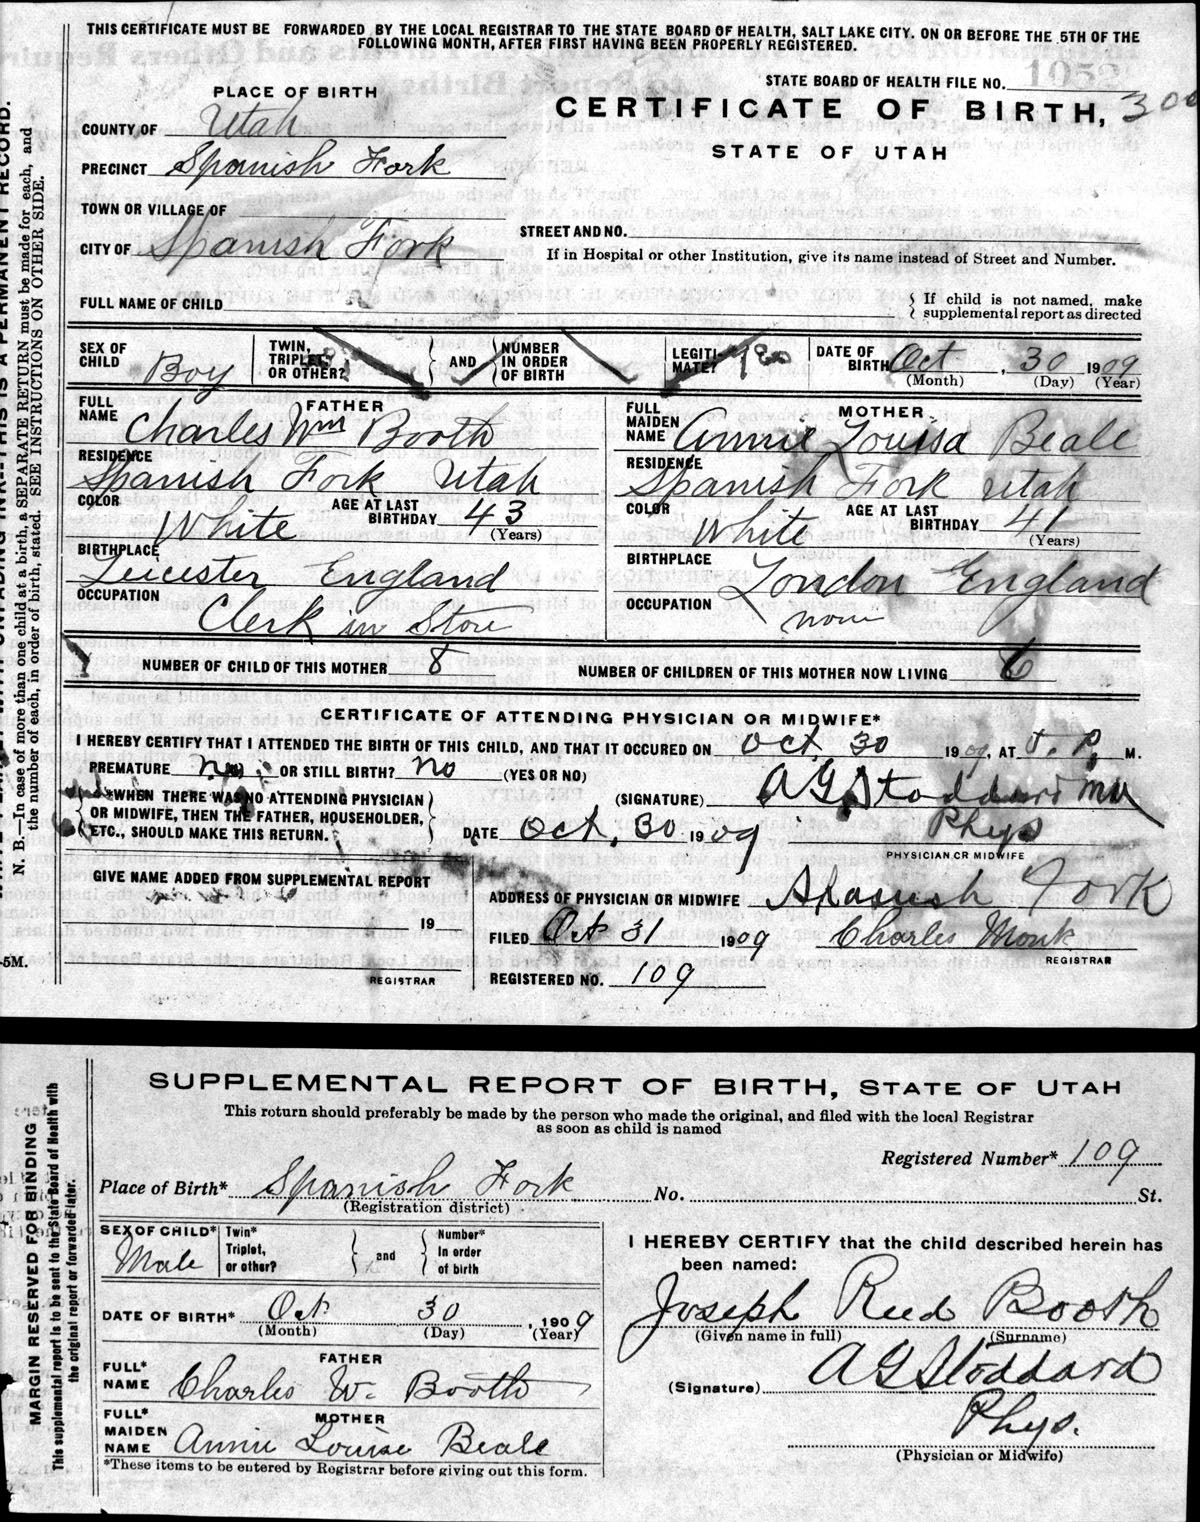 THIS CERTIFICATE MUST BE FORWARDED BY THE LOCAL REGISTRAR TO THE STATE BOARD OF HEALTH, SALT LAKE CITY. ON OR BEFORE THE 5TH OF THE
FOLLOWING MONTH, AFTER FIRST HAVING BEEN PROPERLY REGISTERED.
STATE BOARD OF HEALTH FILE NO.
CERTIFICATE OF BIRTH, 300
STATE OF UTAH
PLACE OF BIRTH
COUNTY OF Utah
PRECINCT Spanish Fork
TOWN OR VILLAGE OF
CITY OF Spanish Fork
STREET AND NO.
If in Hospital or other Institution, give its name instead of Street and Number.
FULL NAME OF CHILD
If child is not named, make
supplemental report as directed
SEX OF CHILD Boy
TWIN, TRIPLET, OR OTHER?
AND
NUMBER IN ORDER OF BIRTH
LEGITIMATE? yes
DATE OF BIRTH Oct, 30 1909
(Month) (Day) (Year)
FATHER
FULL NAME Charles Wm Booth
RESIDENCE Spanish Fork Utah
COLOR White AGE AT LAST BIRTHDAY 43
(Years)
BIRTHPLACE Leicester England
OCCUPATION Clerk in Store
MOTHER
FULL MAIDEN NAME Annie Louisa Beale
RESIDENCE Spanish Fork Utah
COLOR White AGE AT LAST BIRTHDAY 41
(Years)
BIRTHPLACE London England
OCCUPATION none
NUMBER OF CHILD OF THIS MOTHER 8 NUMBER OF CHILDREN OF THIS MOTHER NOW LIVING 6
CERTIFICATE OF ATTENDING PHYSICIAN OR MIDWIFE*
I HEREBY CERTIFY THAT I ATTENDED THE BIRTH OF THIS CHILD, AND THAT IT OCCURED ON Oct. 30 1909, AT P. M.
PREMATURE No. OR STILL BIRTH? No (YES OR NO)
*WHEN THERE WAS NO ATTENDING PHYSICIAN
OR MIDWIFE, THEN THE FATHER, HOUSEHOLDER,
ETC., SHOULD MAKE THIS RETURN.
(SIGNATURE) A G Stoddard MD
DATE Oct, 30 1909 Phys
PHYSICIAN OR MIDWIFE
GIVE NAME ADDED FROM SUPPLEMENTAL REPORT
19
REGISTRAR
ADDRESS OF PHYSICIAN OR MIDWIFE Spanish Fork
FILED Oct 31 1909 Charles Monk
REGISTRAR
REGISTERED NO. 109
N. B.—In case of more than one child at a birth, a SEPARATE RETURN must be made for each, and
the number of each, in order of birth, stated. SEE INSTRUCTIONS ON OTHER SIDE.
5M.
SUPPLEMENTAL REPORT OF BIRTH, STATE OF UTAH
This return should preferably be made by the person who made the original, and filed with the local Registrar
as soon as child is named
Registered Number* 109
Place of Birth* Spanish Fork No. St.
(Registration district)
SEX OF CHILD* Male
Twin* Triplet, or other?
and
Number* In order of birth
DATE OF BIRTH* Oct 30, 1909
(Month) (Day) (Year)
FATHER
FULL* NAME Charles W. Booth
MOTHER
FULL* MAIDEN NAME Annie Louise Beale
*These items to be entered by Registrar before giving out this form.
I HEREBY CERTIFY that the child described herein has
been named:
Joseph Reed Booth
(Given name in full) (Surname)
(Signature) A G Stoddard
Phys.
(Physician or Midwife)
MARGIN RESERVED FOR BINDING
This supplemental report is to be sent to the State Board of Health with
the original report or forwarded later.